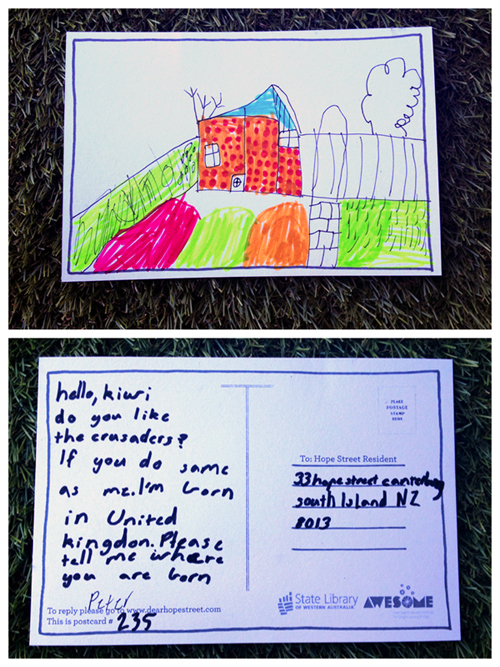 hello, kiwi
do you like
the crusaders?
If you do same
as me. I'm born
in United
kingdon. Please
tell me where
you are born
Peter
To reply please go to www.dearhopestreet.com
This is postcard # 235
PLACE
POSTAGE
STAMP
HERE
To: Hope Street Resident
33 hope street canterbury
south Island NZ
8013
State Library
OF WESTERN AUSTRALIA
AWESOME